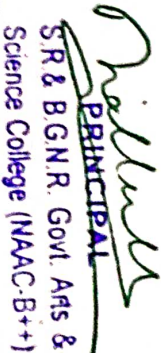 PRINCIPAL
S.R & B.G.N.R. Govt. Arts &
Science College (NAAC-B++)